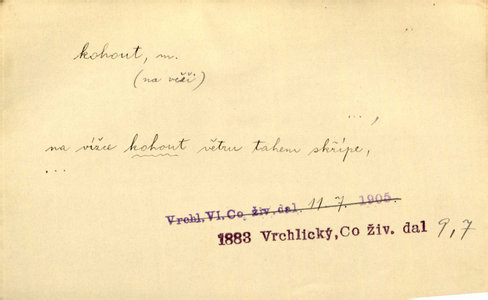 kohout, m.
(na věži)
... ,
na vížce kohout větru tahem skřípe,
...
Vrchl.VI.Co živ.dal 11.7. 1905.
1883 Vrchlický,Co živ. dal 9,7